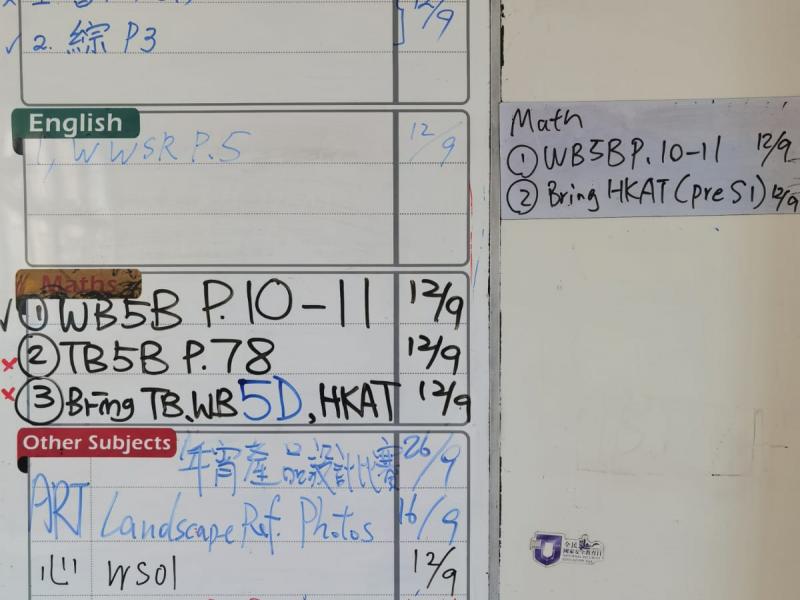 12/9
✓ 2. 綜 P3
English
1, WWSR P.5 12/9
Maths
✓ ① WB5B P.10-11 12/9
× ② TB5B P.78 12/9
× ③ Bring TB, WB 5D, HKAT 12/9
Other Subjects
年宵產品設計比賽 26/9
ART Landscape Ref. Photos 16/9
心 WS01 12/9
Math
① WB5B P. 10-11 12/9
② Bring HKAT (pre S1) 12/9
全民
國家安全教育日